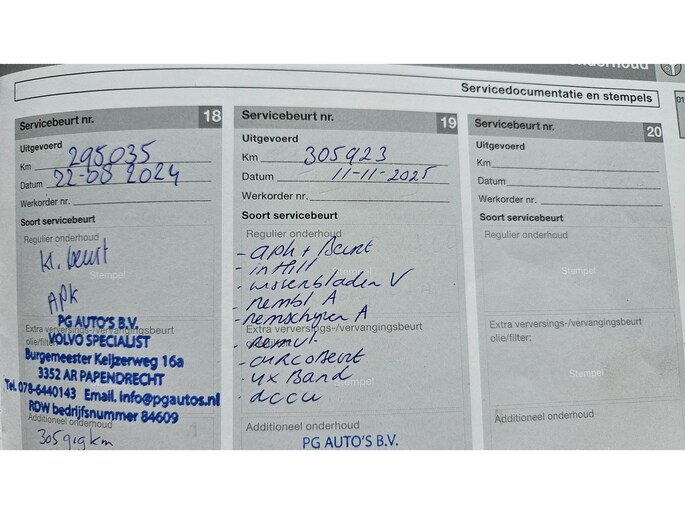 onderhoud
Servicedocumentatie en stempels
01
Servicebeurt nr. 18
Uitgevoerd
Km 295035
Datum 22-08 2024
Werkorder nr.
Soort servicebeurt
Regulier onderhoud
Kl. beurt
Stempel
APK
PG AUTO'S B.V.
Extra verversings-/vervangingsbeurt
VOLVO SPECIALIST
olie/filter:
Burgemeester Keijzerweg 16a
3352 AR PAPENDRECHT
Tel. 078-6440143 Email. info@pgautos.nl
RDW bedrijfsnummer 84609
Additioneel onderhoud
305919km
Servicebeurt nr. 19
Uitgevoerd
Km 305923
Datum 11-11-2025
Werkorder nr.
Soort servicebeurt
Regulier onderhoud
- apk + Beurt
- interieurfilter
- wisserbladen V
Stempel
- rembl A
- remschijven A
Extra verversings-/vervangingsbeurt
- remvl.
olie/filter:
- aircoBeurt
- 4x Band
Stempel
- accu
Additioneel onderhoud
PG AUTO'S B.V.
Servicebeurt nr. 20
Uitgevoerd
Km
Datum
Werkorder nr.
Soort servicebeurt
Regulier onderhoud
Stempel
Extra verversings-/vervangingsbeurt
olie/filter:
Stempel
Additioneel onderhoud